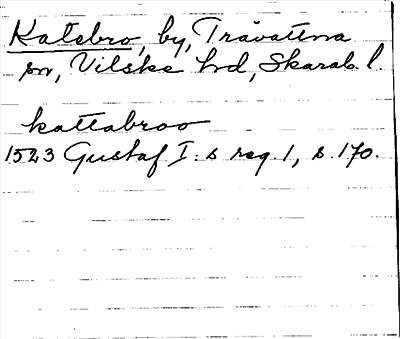 Katebro, by, Trävattna
sn, Vilske hd, Skarab. l.
kattabroo
1523 Gustaf I:s reg. 1, s. 170.